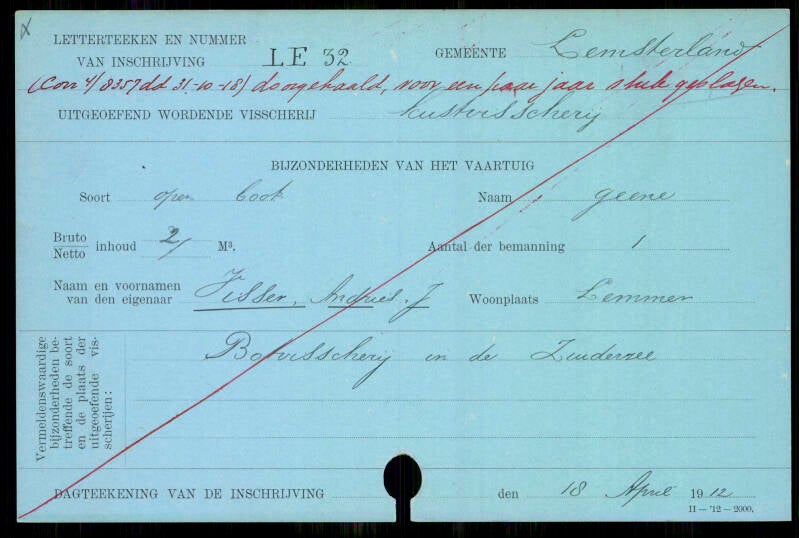 LETTERTEEKEN EN NUMMER
VAN INSCHRIJVING LE 32 GEMEENTE Lemsterland
(Corr 4/8357 dd 31-10-18) doorgehaald, voor een paar jaar stuk geslagen.
UITGEOEFEND WORDENDE VISSCHERIJ kustvisscherij
BIJZONDERHEDEN VAN HET VAARTUIG
Soort open boot Naam geene
Bruto
Netto inhoud 2/ M³. Aantal der bemanning 1
Naam en voornamen
van den eigenaar Visser, Andries. J Woonplaats Lemmer
Vermeldenswaardige
bijzonderheden be-
treffende de soort
en de plaats der
uitgeoefende vis-
scherijen:
Botvisscherij in de Zuiderzee
DAGTEEKENING VAN DE INSCHRIJVING den 18 April 1912
II — '12 — 2000.